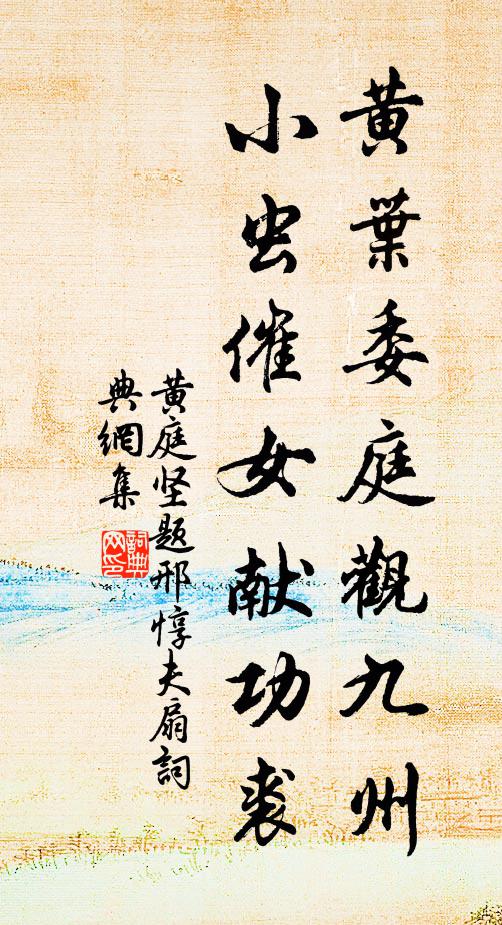 黄葉委庭觀九州
小虫催女献功裘
黄庭坚题邢惇夫扇詞
典網集
詞典网印